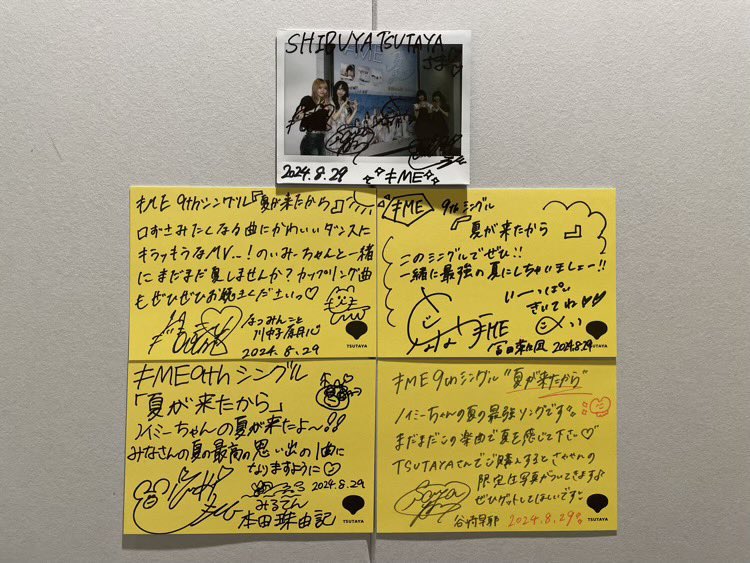 SHIBUYA TSUTAYA
さま
2024.8.29
≠ME
≠ME 9thシングル『夏が来たから』
口ずさみたくなる曲にかわいいダンスに
キラッキラなMV…!のいみーちゃんと一緒
にまだまだ夏しませんか?カップリング曲
もぜひぜひお聴きくださいっ♡
なつみんこと
川中子奈月心
2024.8.29
TSUTAYA
≠ME 9thシングル
『夏が来たから』
このシングルでぜひ!!
一緒に最強の夏にしちゃいましょー!!
いーっぱい
きいてね♡♡
≠ME
冨田菜々風 2024.8.29
TSUTAYA
≠ME 9thシングル
「夏が来たから」
ノイミーちゃんの夏が来たよ〜!!
みなさんの夏の最高の思い出の1曲に
なりますように♡
2024.8.29
みるてん
本田珠由記
TSUTAYA
≠ME 9thシングル"夏が来たから"
ノイミーちゃんの夏の最強ソングです。
まだまだこの楽曲で夏を感じて下さい♡
TSUTAYAさんでご購入するとさややんの
限定生写真がついてきます♪
ぜひゲットしてほしいです
谷崎早耶 2024.8.29
TSUTAYA